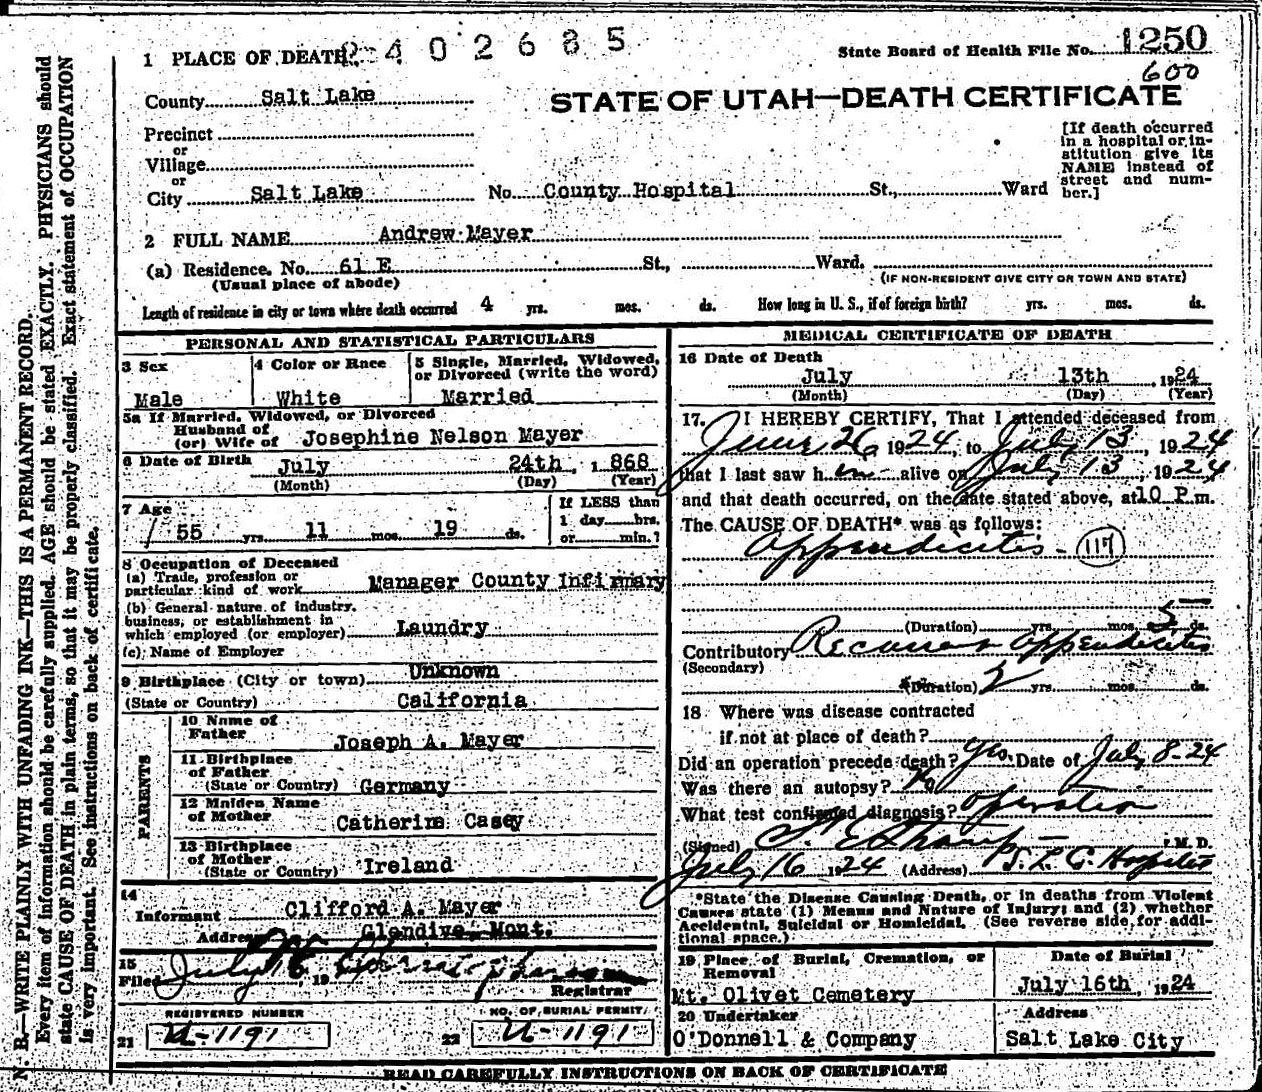 1 PLACE OF DEATH 2402685
State Board of Health File No. 1250
600
County Salt Lake
STATE OF UTAH—DEATH CERTIFICATE
Precinct
or
Village
or
City Salt Lake No. County Hospital St., Ward
[If death occurred
in a hospital or in-
stitution give its
NAME instead of
street and num-
ber.]
2 FULL NAME Andrew Mayer
(a) Residence. No. 61 E St., Ward.
(Usual place of abode) (IF NON-RESIDENT GIVE CITY OR TOWN AND STATE)
Length of residence in city or town where death occurred 4 yrs. mos. ds. How long in U. S., if of foreign birth? yrs. mos. ds.
PERSONAL AND STATISTICAL PARTICULARS
3 Sex
Male
4 Color or Race
White
5 Single, Married, Widowed,
or Divorced (write the word)
Married
5a If Married, Widowed, or Divorced
Husband of
(or) Wife of Josephine Nelson Mayer
6 Date of Birth July 24th, 1868
(Month) (Day) (Year)
7 Age
55 yrs. 11 mos. 19 ds.
If LESS than
1 day hrs.
or min.?
8 Occupation of Deceased
(a) Trade, profession or
particular kind of work Manager County Infirmary
(b) General nature of industry,
business, or establishment in
which employed (or employer) Laundry
(c) Name of Employer
9 Birthplace (City or town) Unknown
(State or Country) California
PARENTS
10 Name of
Father Joseph A. Mayer
11 Birthplace
of Father
(State or Country) Germany
12 Maiden Name
of Mother Catherine Casey
13 Birthplace
of Mother
(State or Country) Ireland
14
Informant Clifford A. Mayer
Address Glendive, Mont.
15
Filed July 16, 19
Registrar
REGISTERED NUMBER
21 U-1191
NO. OF BURIAL PERMIT
22 U-1191
MEDICAL CERTIFICATE OF DEATH
16 Date of Death
July 13th, 1924
(Month) (Day) (Year)
17. I HEREBY CERTIFY, That I attended deceased from
June 26, 1924, to July 13, 1924
that I last saw him alive on July 13, 1924
and that death occurred, on the date stated above, at 10 P.m.
The CAUSE OF DEATH* was as follows:
Appendicitis - 117
(Duration) yrs. mos. 5 ds.
Contributory Recurrent Appendicitis
(Secondary)
(Duration) 2 yrs. mos. ds.
18 Where was disease contracted
if not at place of death?
Did an operation precede death? Yes. Date of July 8-24
Was there an autopsy? No
What test confirmed diagnosis? operation
(Signed) M. D.
July 16 1924 (Address) S. L. C. Hospital
*State the Disease Causing Death, or in deaths from Violent
Causes state (1) Means and Nature of Injury; and (2) whether
Accidental, Suicidal or Homicidal. (See reverse side for addi-
tional space.)
19 Place of Burial, Cremation, or
Removal
Mt. Olivet Cemetery
Date of Burial
July 16th, 1924
20 Undertaker
O'Donnell & Company
Address
Salt Lake City
READ CAREFULLY INSTRUCTIONS ON BACK OF CERTIFICATE
N. B.—WRITE PLAINLY WITH UNFADING INK—THIS IS A PERMANENT RECORD.
Every item of information should be carefully supplied. AGE should be stated EXACTLY. PHYSICIANS should
state CAUSE OF DEATH in plain terms, so that it may be properly classified. Exact statement of OCCUPATION
is very important. See instructions on back of certificate.